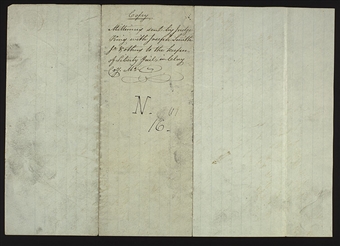 Copy
Mittimus sent by Judge
King with Joseph Smith
Jr & others to the keeper
of Liberty Jail in Clay
Coy. Mo.
N.
16.